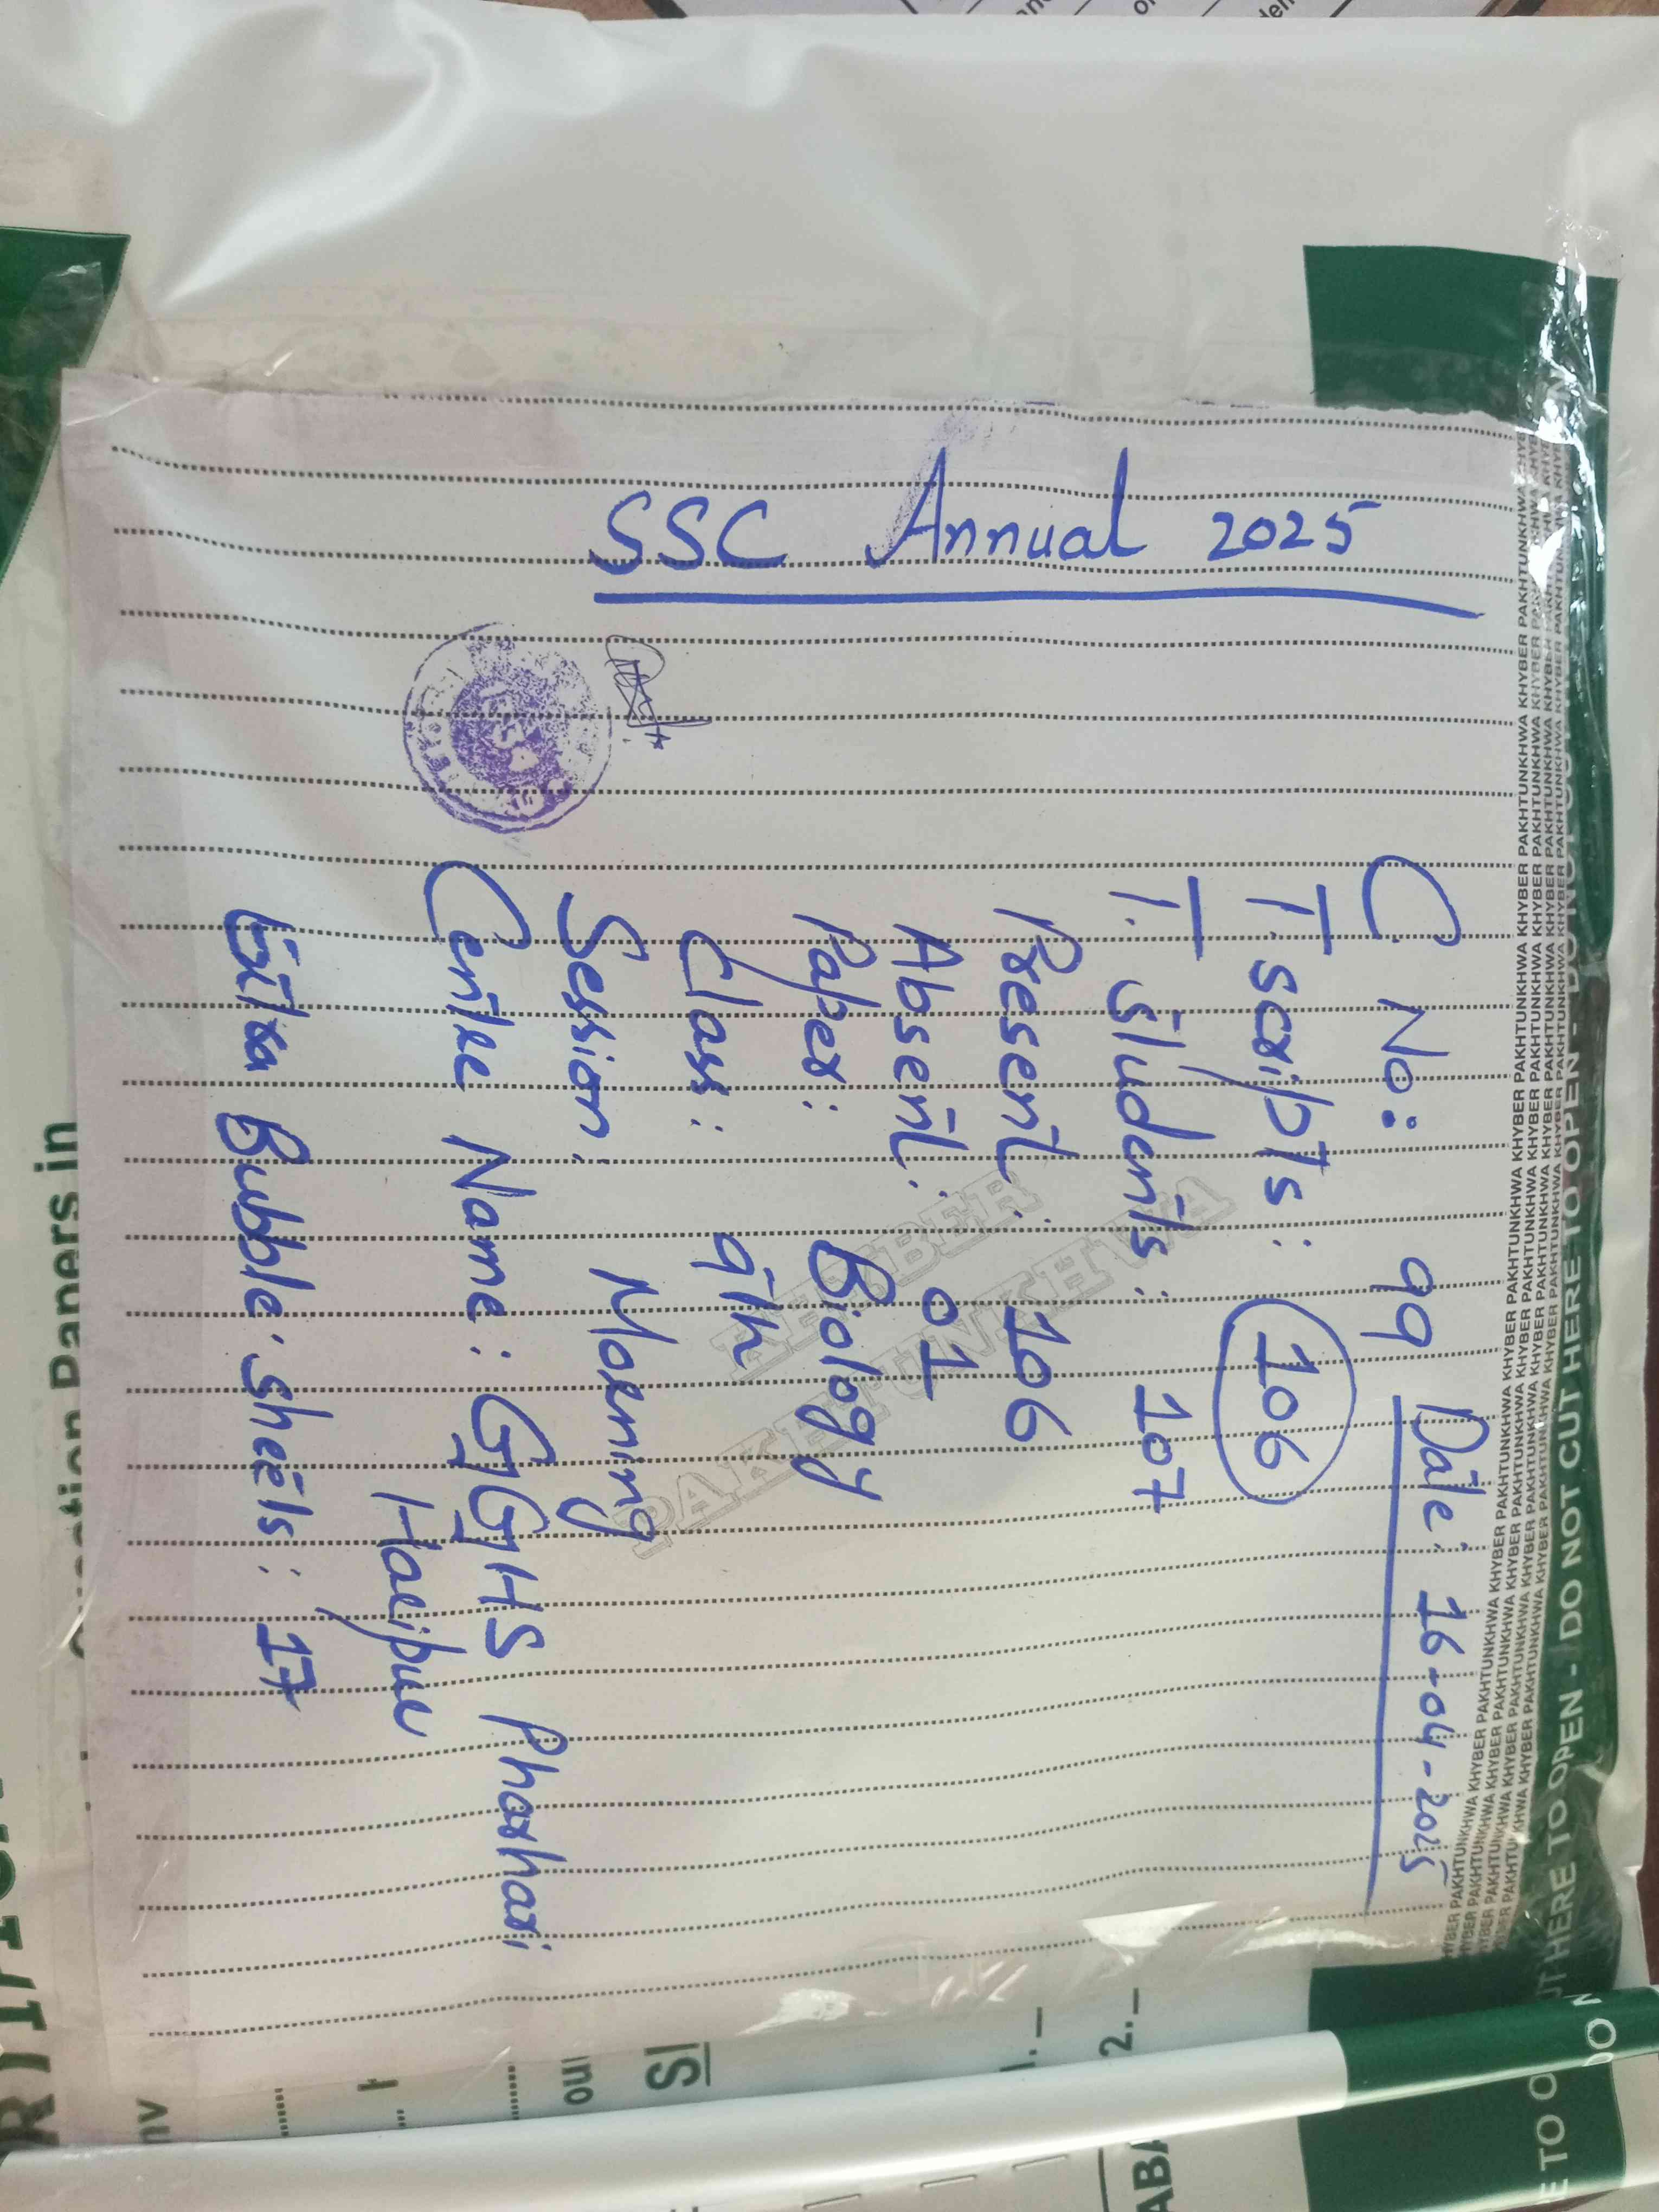 SSC Annual 2025
C. No: 99 Date: 16-04-2025
T. scripts: 106
T. Students: 107
Present: 106
Absent: 01
Paper: Biology
Class: 9th
Session: Morning
Centre Name: GGHS Pharhari
Haripur
Extra Bubble Sheets: 17
KHYBER
PAKHTUNKHWA
DO NOT CUT HERE TO OPEN - DO NOT CUT HERE TO OPEN
KHYBER PAKHTUNKHWA KHYBER PAKHTUNKHWA KHYBER PAKHTUNKHWA KHYBER PAKHTUNKHWA
Question Papers in